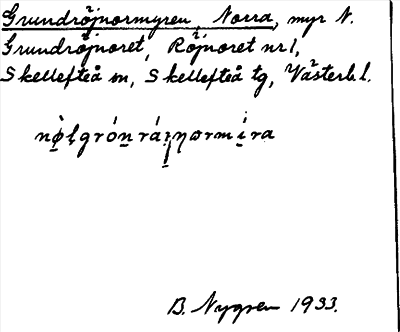 Grundröjnormyren, Norra, myr N.
Grundröjnoret, Röjnoret nr 1,
Skellefteå sn, Skellefteå tg, Västerb. l.
B. Nygren 1933.